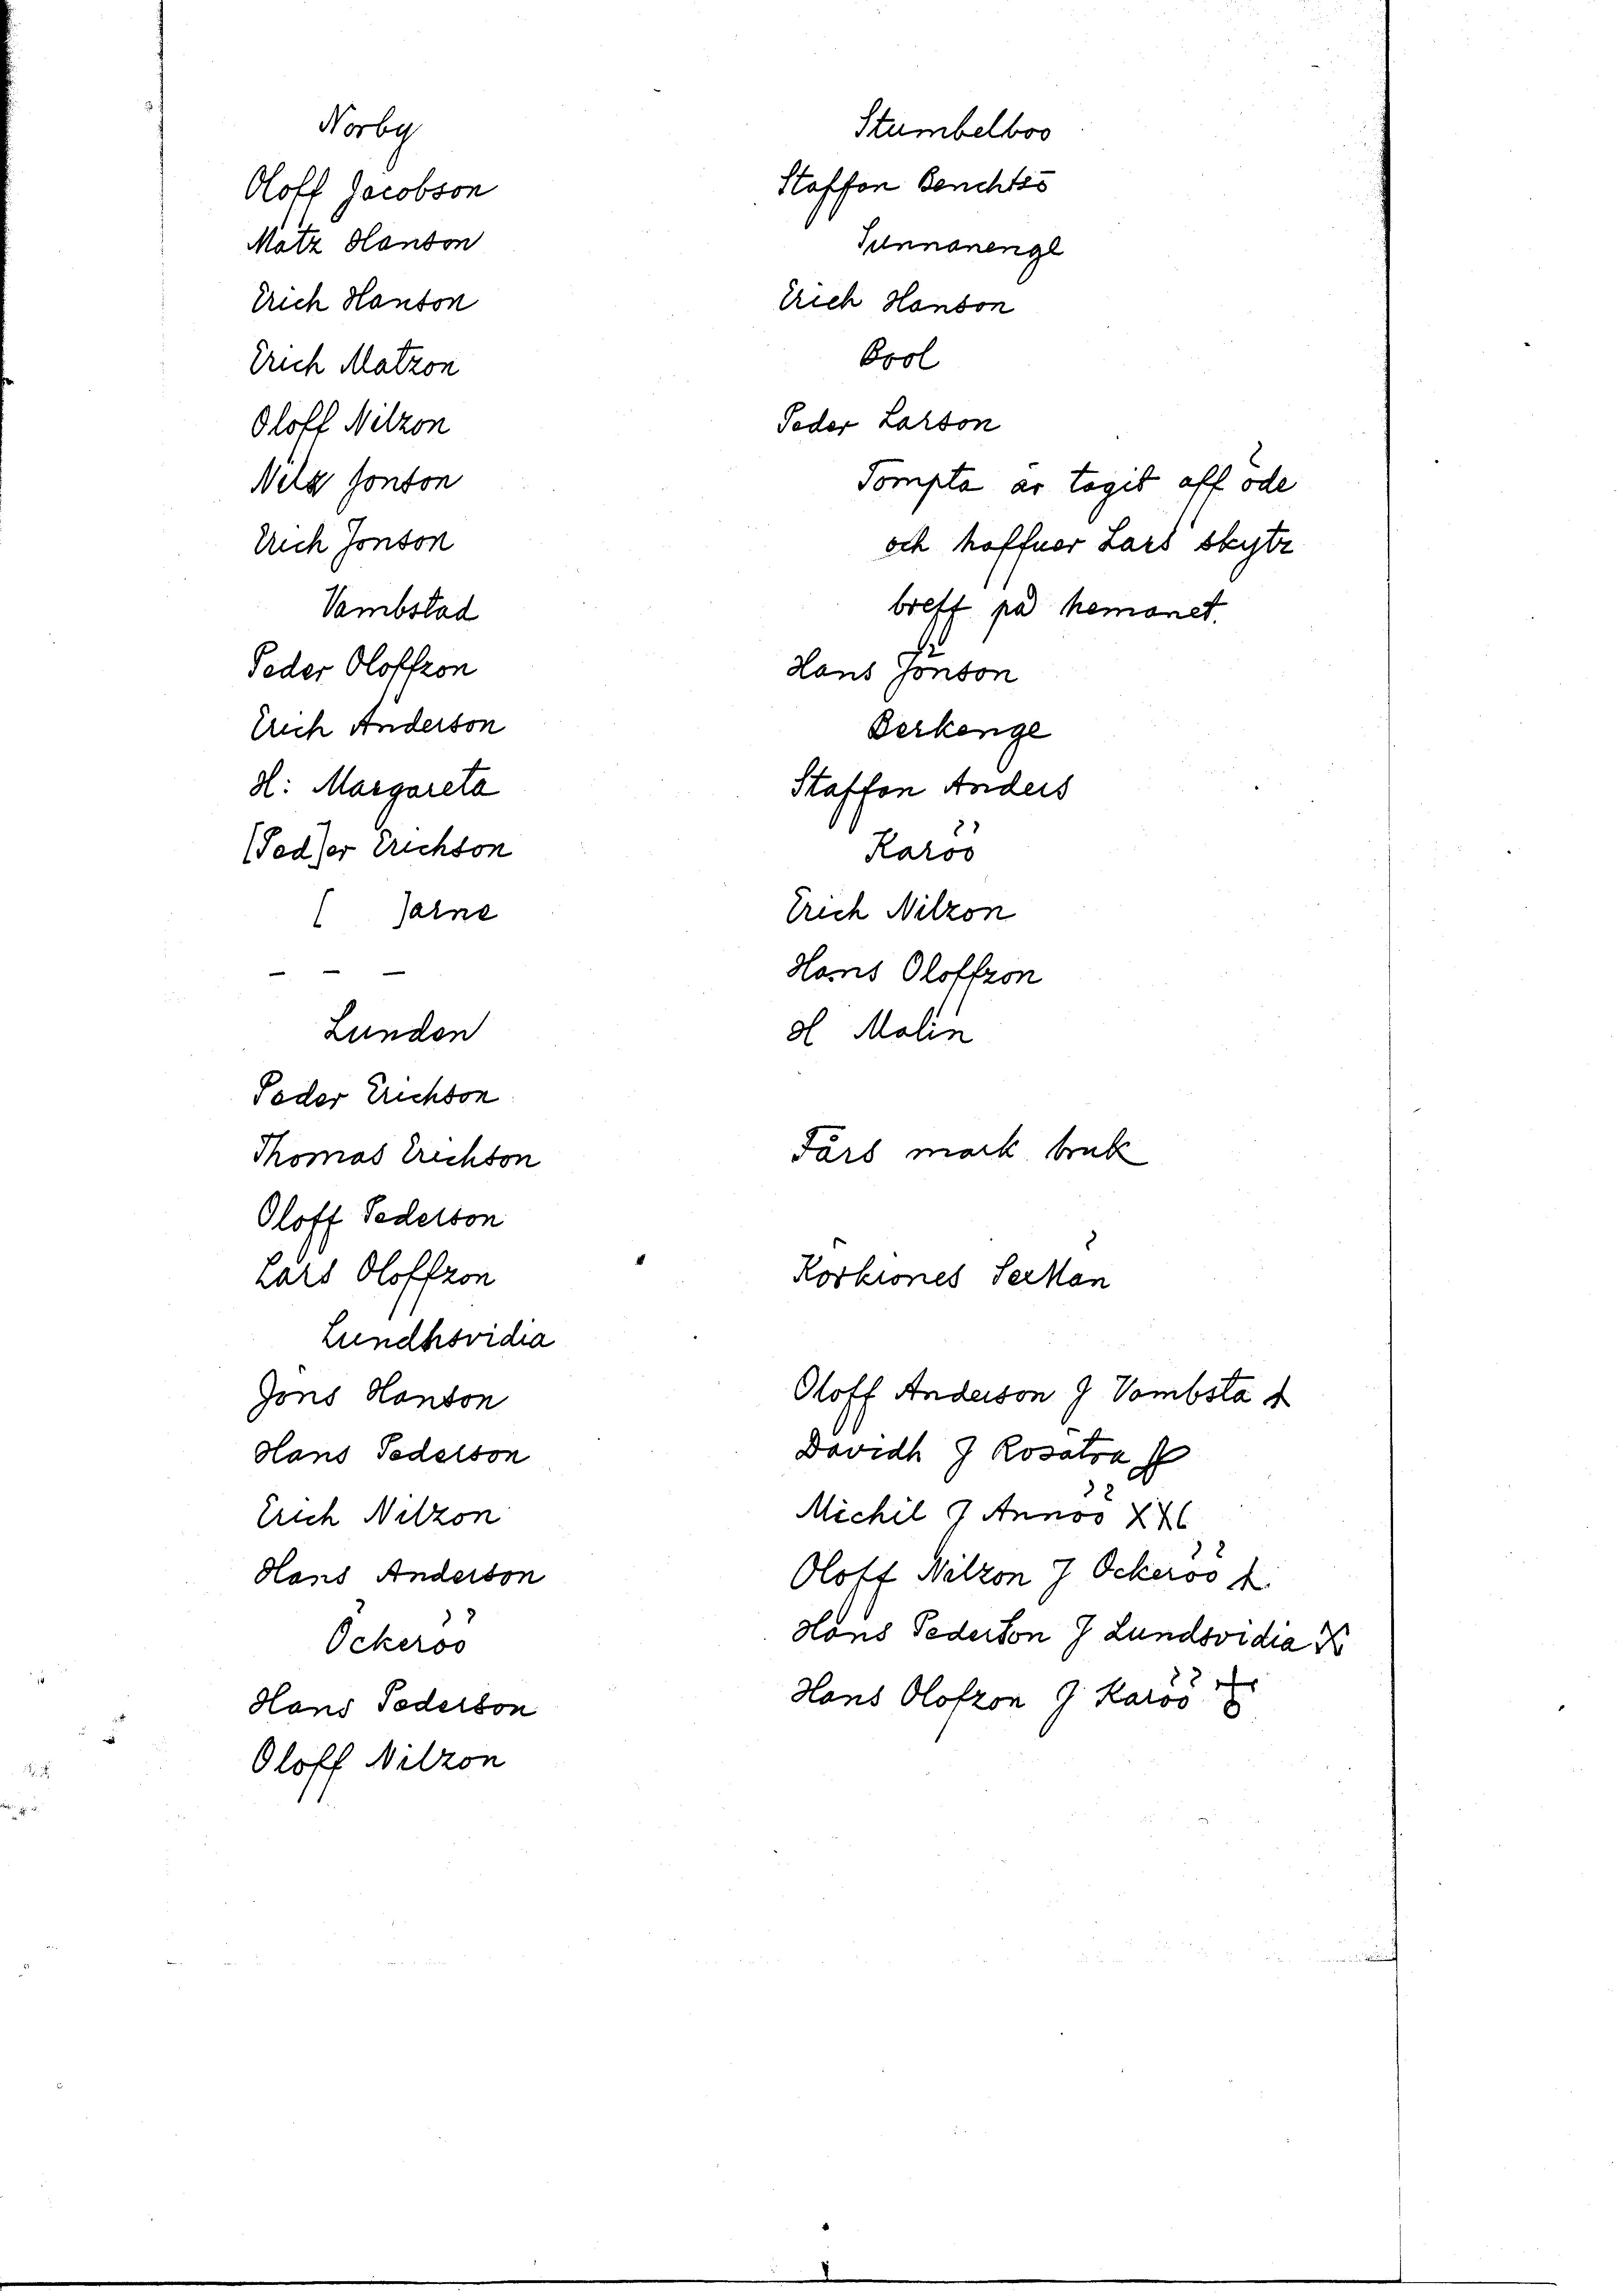 Norby
Oloff Jacobson
Matz Hanson
Erich Hanson
Erich Matzon
Oloff Nilzon
Nilz Jonson
Erich Jonson
Vambstad
Peder Oloffzon
Erich Anderson
H: Margareta
[Ped]er Erichson
[ ]arne
- - -
Lunden
Peder Erichson
Thomas Erichson
Oloff Pederson
Lars Oloffzon
Lundhsvidia
Jöns Hanson
Hans Pederson
Erich Nilzon
Hans Anderson
Öckeröö
Hans Pederson
Oloff Nilzon
Stumbelboo
Staffan Benchtsö
Sunnanenge
Erich Hanson
Bool
Peder Larson
Tompta är tagit aff öde
och haffuer Lars skytz
breff på hemanet.
Hans Jönson
Berkenge
Staffan Anders
Karöö
Erich Nilzon
Hans Oloffzon
H Malin
Fårs mark bruk
Körkiones
Oloff Anderson J Vambsta
Davidh J Rosätra
Michil J Annöö
Oloff Nilzon J Ockeröö
Hans Pederson J Lundsvidia
Hans Olofzon J Karöö